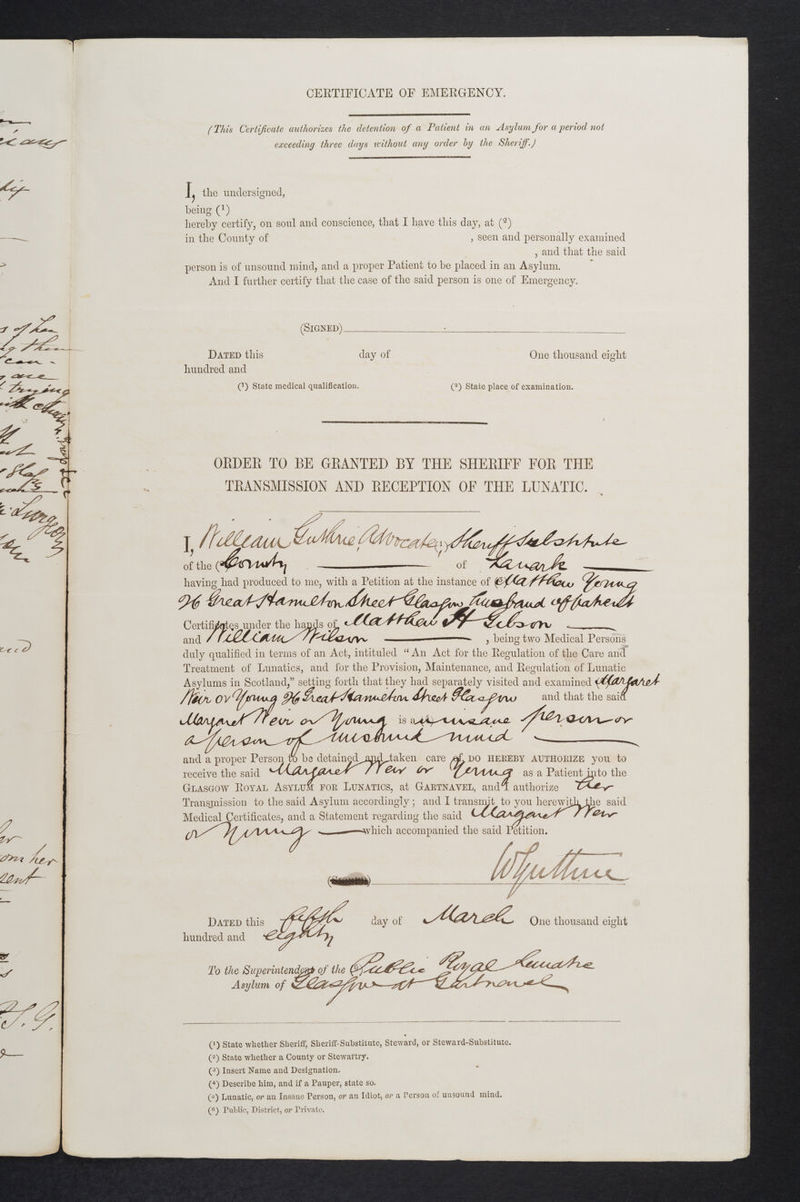 CERTIFICATE OF EMERGENCY.
(This Certificate authorizes the detention of a Patient in an Asylum for a period not
exceeding three days without any order by the Sheriff.)
I, the undersigned,
being (1)
hereby certify, on soul and conscience, that I have this day, at (2)
in the County of , seen and personally examined
, and that the said
person is of unsound mind, and a proper Patient to be placed in an Asylum.
And I further certify that the case of the said person is one of Emergency.
(SIGNED)
DATED this day of One thousand eight
hundred and
(1) State medical qualification. (2) State place of examination.
ORDER TO BE GRANTED BY THE SHERIFF FOR THE
TRANSMISSION AND RECEPTION OF THE LUNATIC.
I, William Guthrie Advocate, Sheriff Substitute
of the County of Lanark
having had produced to me, with a Petition at the instance of Matthew Young
96 Great Hamilton Street Glasgow husband of patient
Certificates under the hands of Matthew Gibson
and William Wilson , being two Medical Persons
duly qualified in terms of an Act, intituled "An Act for the Regulation of the Care and
Treatment of Lunatics, and for the Provision, Maintenance, and Regulation of Lunatic
Asylums in Scotland," setting forth that they had separately visited and examined Margaret
Weir or Young 96 Great Hamilton Street Glasgow and that the said
Margaret Weir or Young is an insane person or
a person of unsound mind
and a proper Person to be detained and taken care of, DO HEREBY AUTHORIZE you to
receive the said Margaret Weir or Young as a Patient into the
GLASGOW ROYAL ASYLUM FOR LUNATICS, at GARTNAVEL, and I authorize her
Transmission to the said Asylum accordingly; and I transmit to you herewith the said
Medical Certificates, and a Statement regarding the said Margaret Weir
or Young which accompanied the said Petition.
W Guthrie
DATED this fifth day of March One thousand eight
hundred and eighty
To the Superintendent of the Public Royal Lunatic
Asylum of Glasgow at Gartnavel
(1) State whether Sheriff, Sheriff-Substitute, Steward, or Steward-Substitute.
(2) State whether a County or Stewartry.
(3) Insert Name and Designation.
(4) Describe him, and if a Pauper, state so.
(5) Lunatic, or an Insane Person, or an Idiot, or a Person of unsound mind.
(6) Public, District, or Private.